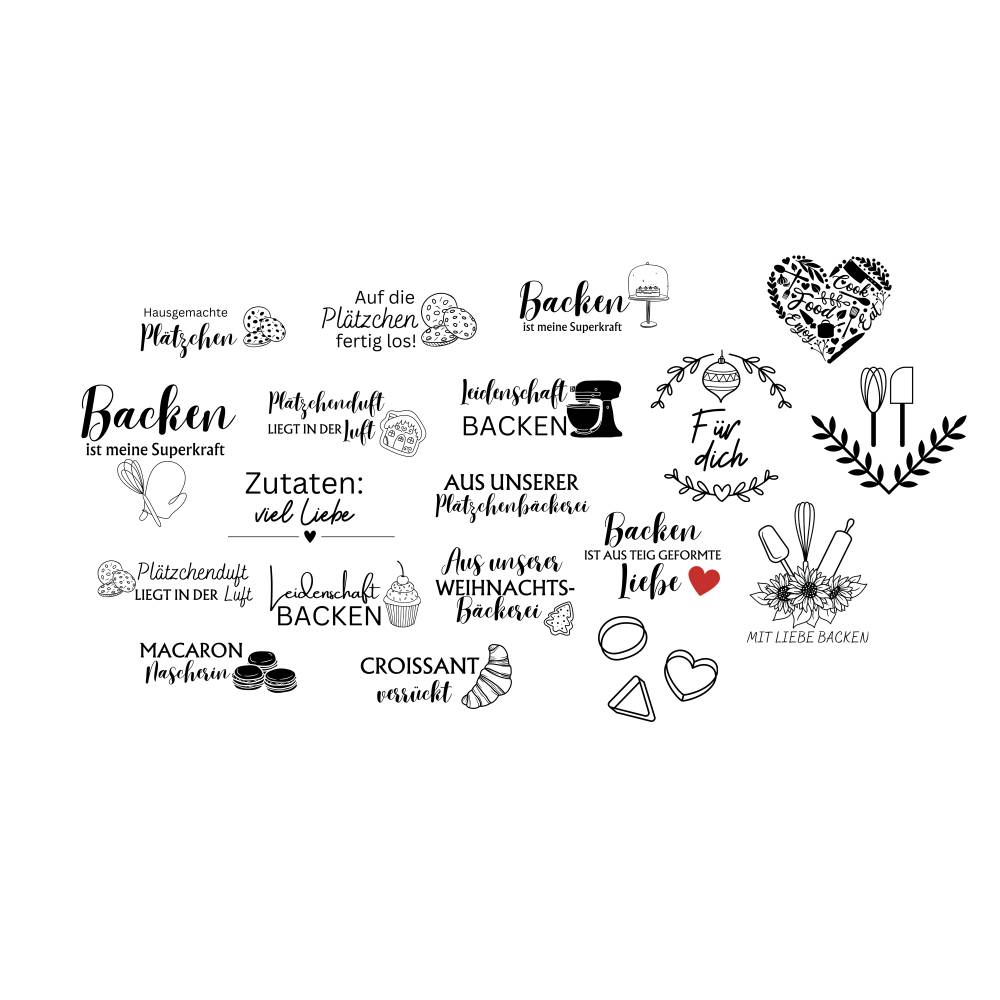 Hausgemachte
Plätzchen
Auf die
Plätzchen
fertig los!
Backen
ist meine Superkraft
Cook
Food
Enjoy
Eat
Backen
ist meine Superkraft
Plätzchenduft
LIEGT IN DER Luft
Leidenschaft
BACKEN
Für
dich
Zutaten:
viel Liebe
AUS UNSERER
Plätzchenbäckerei
Backen
IST AUS TEIG GEFORMTE
Liebe
Plätzchenduft
LIEGT IN DER Luft
Leidenschaft
BACKEN
Aus unserer
WEIHNACHTS-
Bäckerei
MIT LIEBE BACKEN
MACARON
Nascherin
CROISSANT
verrückt